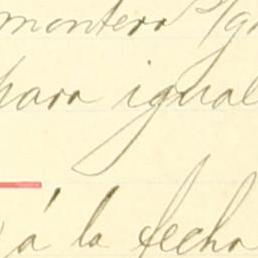 montero
para igual
á la fecha